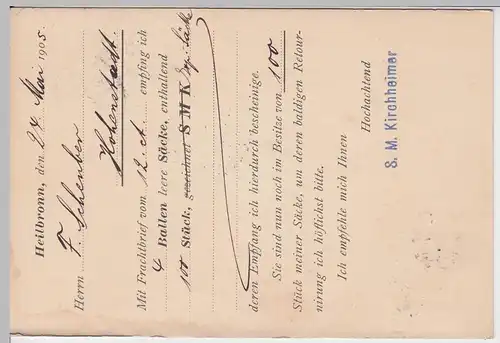 Heilbronn, den 24 Mai 1905.
Herrn F. Scheuber
Hohenstadt.
Mit Frachtbrief vom 12. ct. empfing ich
4 Ballen leere Säcke, enthaltend
100 Stück, gezeichnet S M K Säcke
deren Empfang ich hierdurch bescheinige.
Sie sind nun noch im Besitze von 100
Stück meiner Säcke, um deren baldigen Retour-
nirung ich höflichst bitte.
Ich empfehle mich Ihnen
Hochachtend
S. M. Kirchheimer